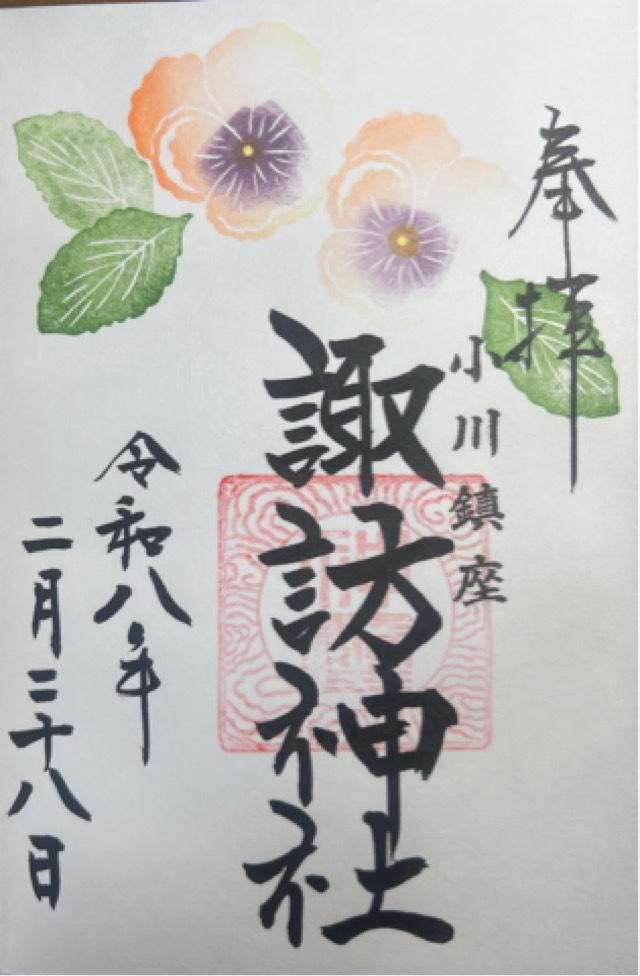 奉拝
小川鎮座
諏訪神社
令和八年
二月二十八日